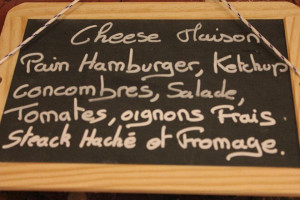 Cheese Maison
Pain Hamburger, Ketchup
concombres, Salade,
Tomates, oignons Frais
Steack Haché et Fromage.